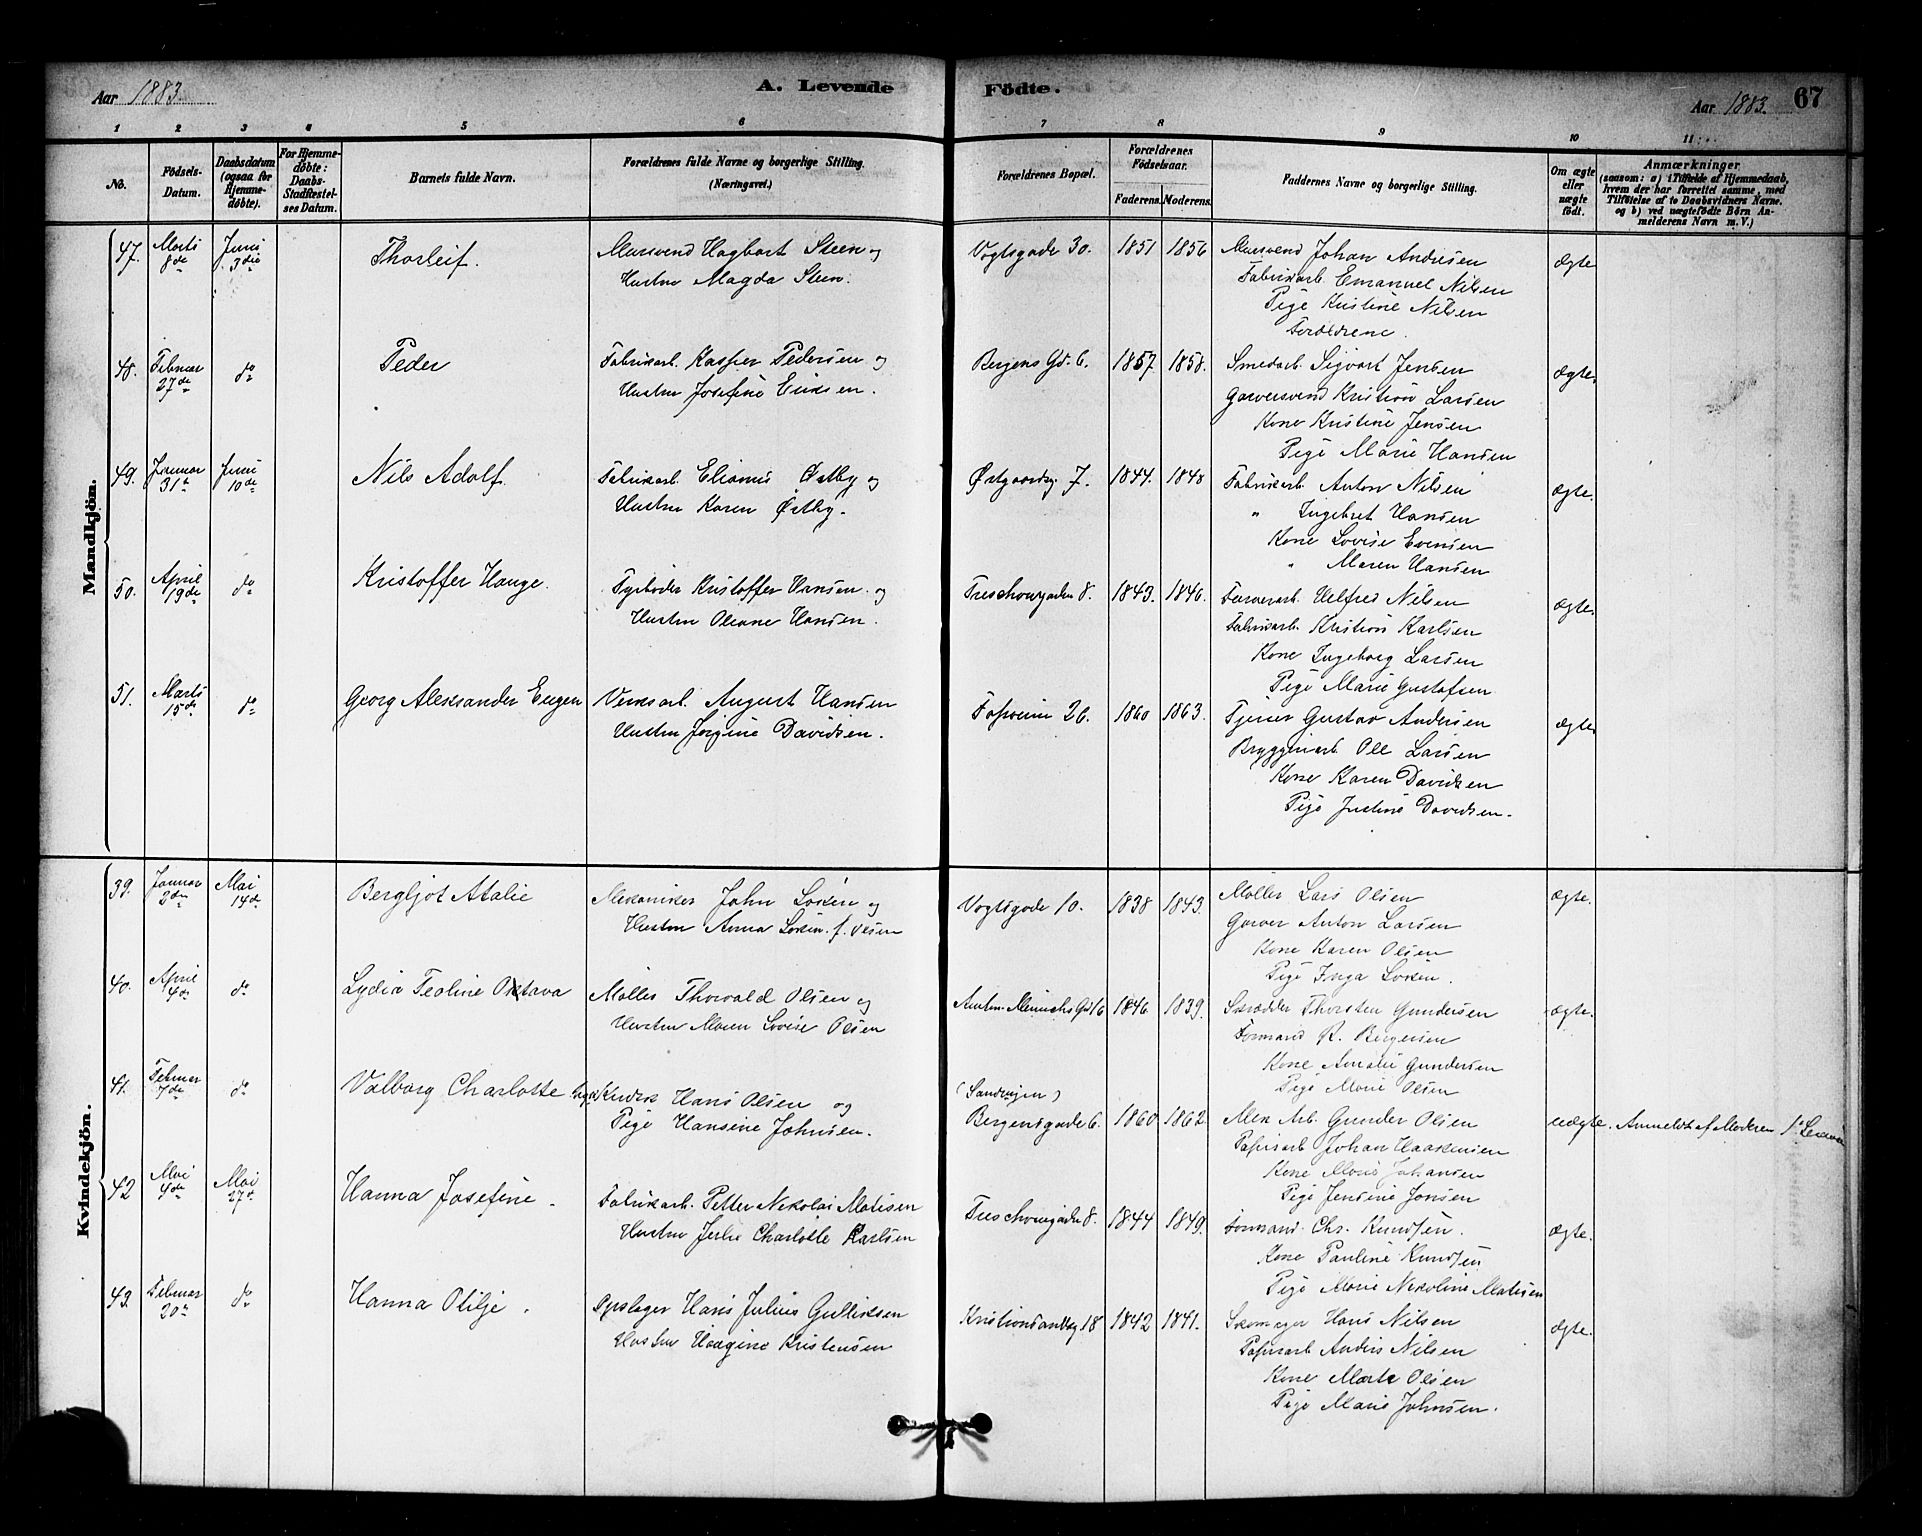 Aar 1883. A. Levende Födte. Aar 1883. 67
1 2 3 4 5 6 7 8 9 10 11
No. Födsels-Datum. Daabsdatum (ogsaa for Hjemmedöbte). For Hjemmedöbte: Daabs-Stadfæstelses Datum. Barnets fulde Navn. Forældrenes fulde Navne og borgerlige Stilling. (Næringsvei.) Forældrenes Bopæl. Forældrenes Födselsaar. Faderens. Moderens. Faddernes Navne og borgerlige Stilling. Om ægte eller uægte födt. Anmærkninger (saasom: a) i Tilfælde af Hjemmedaab, hvem der har forrettet samme, med Tilföielse af to Daabsvidners Navne. og b) ved uægtefödte Börn Anmelderens Navn m. V.)
Mandkjön.
47. Marts 8de Juni 3die Thorleif. Mursvend Hagbart Steen og Vogtsgade 30. 1851 1856 Mursvend Johan Andresen ægte
Hustru Magda Steen. Fabrikarb. Emanuel Nilsen
Pige Kristine Nilsen
Forældrene.
48. Februar 27de do Peder Fabrikarb. Kasper Pedersen og Bergens Gd. 6. 1857. 1858. Smedarb. Sigvart Jensen ægte.
Hustru Josefine Eriksen. Garversvend Kristian Larsen
Kone Kristine Jensen
Pige Marie Hansen
49. Januar 31te Juni 10de Nils Adolf. Fabrikarb. Østby og Østgaardsg. 7. 1844. 1848 Fabrikarb. Anton Nilsen ægte.
Hustru Karen Østby. " Ingebret Hansen
Kone Lovise Evensen
" Maren Hansen
50. April 19de do Kristoffer Hauge. Fyrbøder Kristoffer Hansen og Treschowgaden 8. 1843. 1846. Farverarb. Nilsen ægte.
Hustru Oliane Hansen. Fabrikarb. Kristian Karlsen
Kone Ingeborg Larsen
Pige Marie Gustafsen
51. Marts 15de do Georg Aleksander Eugen Verksarb. August Hansen Fossveien 26. 1860 1863. Tjener Gustav Andersen ægte
Hustru Jørgine Davidsen. Bryggeriarb. Ole Larsen
Kone Karen Davidsen
Pige Justine Davidsen.
Kvindekjön.
39. Januar 2den Mai 14de Bergljot Atalie Mekaniker John og Vogtsgade 10. 1838 1843. Møller Lars Olsen ægte.
Hustru Anna f. Olsen Garver Anton Larsen
Kone Karen Olsen
Pige Inga
40. April 4de do Lydia Teoline Oktava Møller Thorvald Olsen og Anton Meinichs Gd 16 1846. 1839. Skrædder Thorsten Gundersen ægte.
Hustru Maren Lovise Olsen Formand R. Bergersen
Kone Amalie Gundersen
Pige Marie Olsen
41. Februar 7de do Valborg Charlotte Hans Olsen og (Sandvigen) Bergensgade 6. 1860 1862. Mek Arb. Gunder Olsen uægte. Anmeldt af Moderen 1ste
Pige Hansine Johnsen. Papirarb. Johan Haakensen
Kone Marie Johansen
Pige Jensine Jonsen
42 Mai 4de Mai 27de Hanna Josefine. Fabrikarb. Petter Nikolai Matisen Treschowgaden 8. 1844 1849. Formand. Chr. Knudsen. ægte.
Hustru Julie Charlotte Karlsen Kone Pauline Knudsen
Pige Marie Nikoline Matisen
43. Februar 20de do Hanna Otilje. Opslager Hans Julius Gulliksen Kristiansandsg 18 1842 1841. Skomager Hans Nilsen ægte.
Hustru Haagine Kristensen Papirarb Anders Nilsen
Kone Marte Olsen
Pige Marie Johnsen.